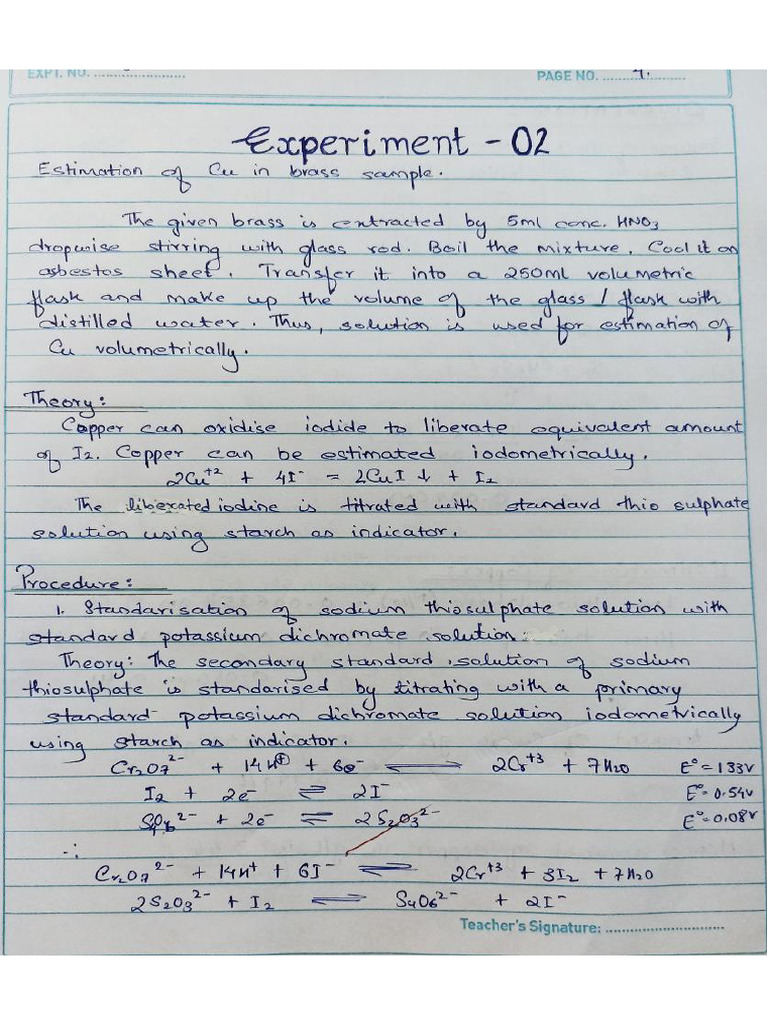 EXPT. NO. ............................
PAGE NO. ............................
Experiment - 02
Estimation of Cu in brass sample.
The given brass is extracted by 5ml conc. HNO₃
dropwise stirring with glass rod. Boil the mixture. Cool it on
asbestos sheet. Transfer it into a 250ml volumetric
flask and make up the volume of the glass / flask with
distilled water. Thus, solution is used for estimation of
Cu volumetrically.
Theory:
Copper can oxidise iodide to liberate equivalent amount
of I₂. Copper can be estimated iodometrically.
2Cu⁺² + 4I⁻ = 2CuI ↓ + I₂
The liberated iodine is titrated with standard thio sulphate
solution using starch as indicator.
Procedure:
1. Standarisation of sodium thiosulphate solution with
standard potassium dichromate solution.
Theory: The secondary standard solution of sodium
thiosulphate is standarised by titrating with a primary
standard potassium dichromate solution iodometrically
using starch as indicator.
Cr₂O₇²⁻ + 14H⁺ + 6e⁻ ⇌ 2Cr⁺³ + 7H₂O E° = 1.33V
I₂ + 2e⁻ ⇌ 2I⁻ E° = 0.54V
S₄O₆²⁻ + 2e⁻ ⇌ 2S₂O₃²⁻ E° = 0.08V
∴
Cr₂O₇²⁻ + 14H⁺ + 6I⁻ ⇌ 2Cr⁺³ + 3I₂ + 7H₂O
2S₂O₃²⁻ + I₂ ⇌ S₄O₆²⁻ + 2I⁻
Teacher's Signature: ............................